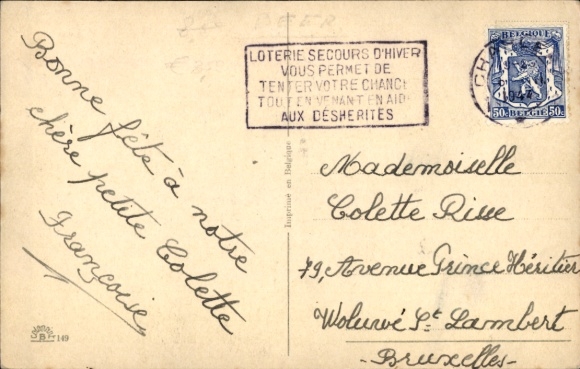 Bonne fête à notre
chère petite Colette
Françoise
LOTERIE SECOURS D'HIVER
VOUS PERMET DE
TENTER VOTRE CHANCE
TOUT EN VENANT EN AIDE
AUX DÉSHÉRITÉS
BELGIQUE
50c BELGIE 50c
Imprimé en Belgique
Mademoiselle
Colette Risse
79, Avenue Prince Héritier
Woluwé St Lambert
- Bruxelles -
149